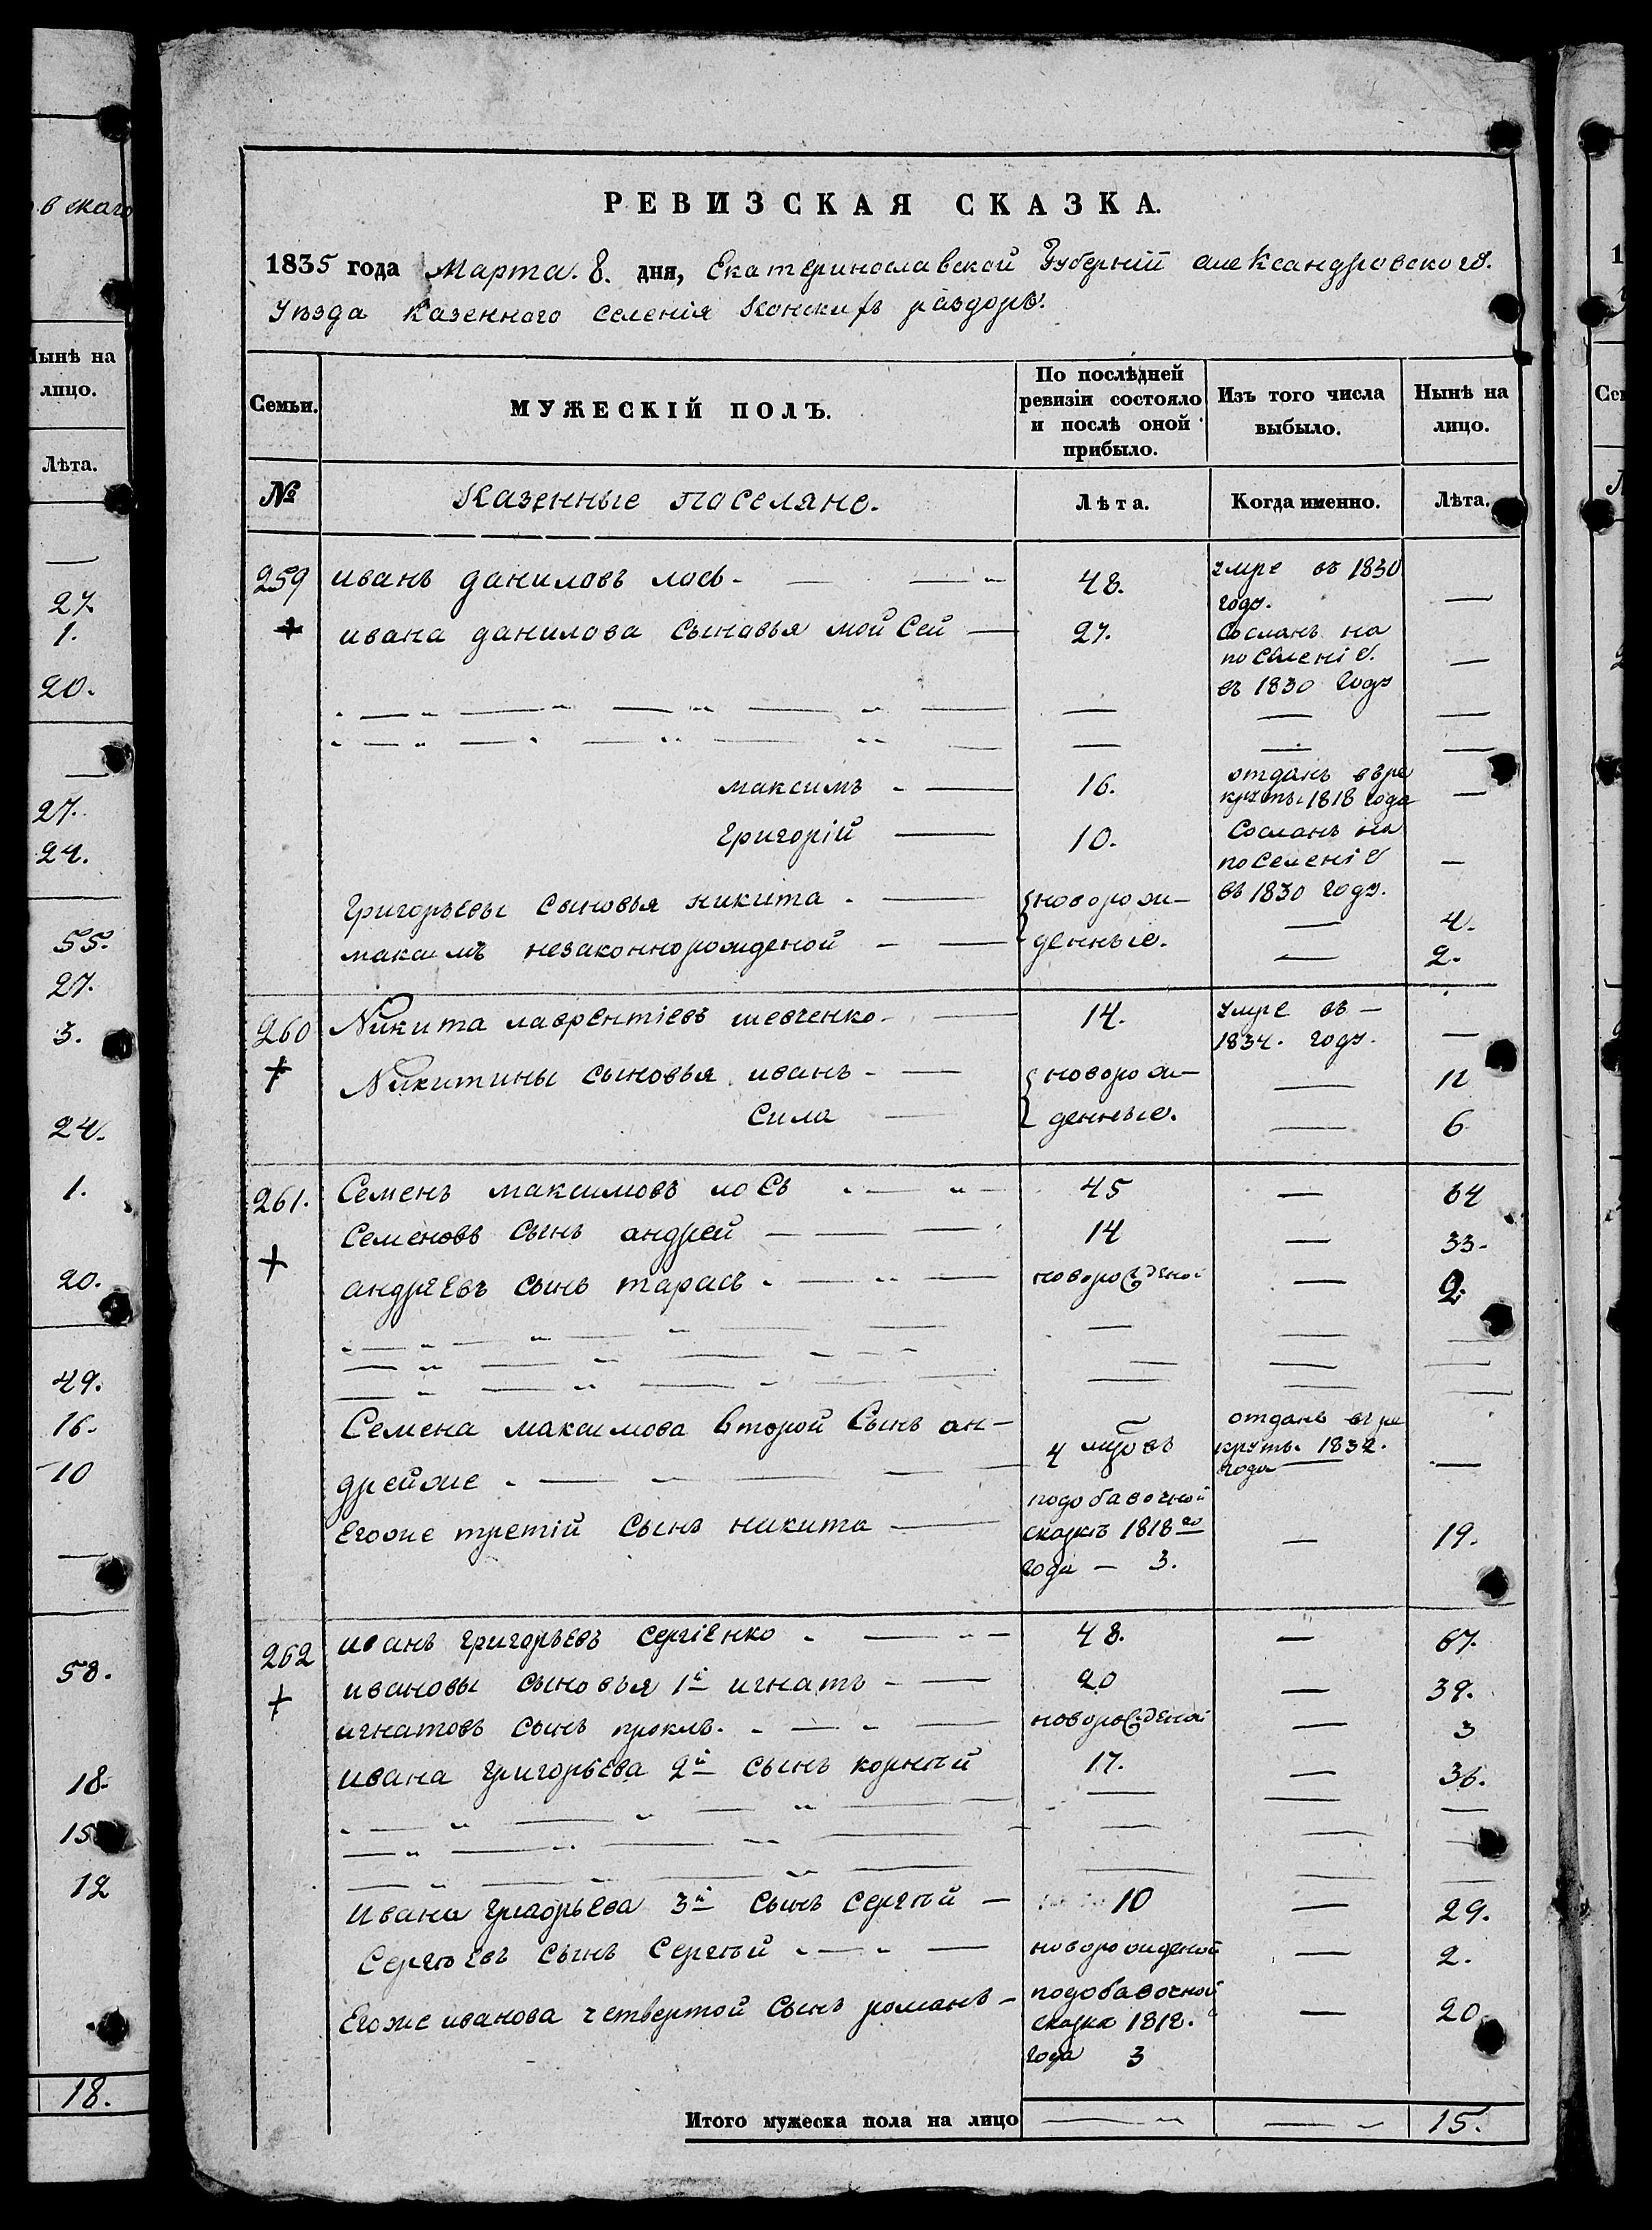 вскаго
Нынѣ на
лицо.
Лѣта.
27.
1.
20.
27.
24.
55.
27.
3.
24.
1.
20.
49.
16.
10
58.
18.
15
12
18.
РЕВИЗСКАЯ СКАЗКА.
1835 года Марта. 8. дня, Екатеринославской Губерніи александровского.
Уѣзда Казенного селенія Конскихъ раздоръ.
Семьи. МУЖЕСКІЙ ПОЛЪ. По послѣдней ревизіи состояло и послѣ оной прибыло. Изъ того числа выбыло. Нынѣ на лицо.
№ Казенные поселяне. Лѣта. Когда именно. Лѣта.
259 иванъ даниловъ лось - 48. умре въ 1830 году. —
+ ивана данилова сыновья мойсей — 27. Сосланъ на поселеніе. въ 1830 году —
максимъ - — 16. отданъ въ рекруты 1818 года —
Григорій — 10. Сосланъ на поселеніе въ 1830 году. —
Григорьевы сыновья никита - — новорож- — 4.
максимъ незаконнорожденой - — денные. — 2.
260 Никита лаврентіевъ шевченко - — 14. умре въ - 1834. году. —
+ Никитины сыновья иванъ - — новорож- — 12
Сила — денные. — 6
261. Семенъ максимовъ лось 45 — 64
Семеновъ сынъ андрей — 14 — 33.
+ андреевъ сынъ тарасъ - — новорожденой — 2.
Семена максимова второй сынъ ан-
дрейже - — 4 отданъ въ рекруты 1832. года —
Егоже третій сынъ никита — подобавочной сказкѣ 1818го года — 3. — 19.
262 иванъ григорьевъ сергіенко - — 48. — 67.
+ ивановы сыновья 1й игнатъ - — 20 — 39.
игнатовъ сынъ проклъ. - — новорожденой — 3
ивана григорьева 2й сынъ корнѣй 17. — 36.
Ивана григорьева 3й сынъ сергѣй — 10 — 29.
Сергѣевъ сынъ Сергѣй - — новорожденой — 2.
Егоже иванова четвертой сынъ романъ - подобавочной сказке 1818. года 3 — 20
Итого мужеска пола на лицо — — 15.